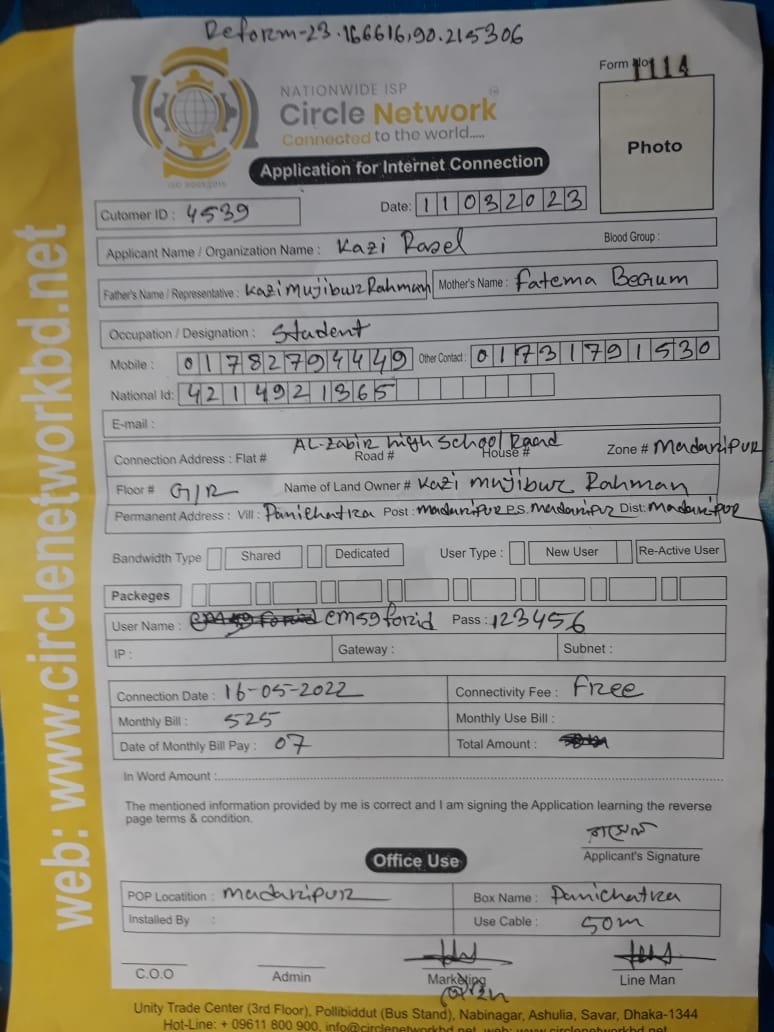 Reform-23.166616,90.215306
Form No 1114
NATIONWIDE ISP
Circle Network
Connected to the world.....
Photo
Application for Internet Connection
ISO 9001:2015
Cutomer ID : 4539
Date: 11032023
Applicant Name / Organization Name : Kazi Rasel Blood Group :
Father's Name / Representative : Kazi Mujibur Rahman Mother's Name : Fatema Begum
Occupation / Designation : Student
Mobile : 01782794449 Other Contact : 01731791530
National Id: 4214921365
E-mail :
Connection Address : Flat # AL-Zabir high School Road # House # Zone # Madaripur
Floor # G/R Name of Land Owner # Kazi Mujibur Rahman
Permanent Address : Vill : Panichatra Post : Madaripur P.S. Madaripur Dist: Madaripur
Bandwidth Type Shared Dedicated User Type : New User Re-Active User
Packeges
User Name : em59forid Pass : 123456
IP : Gateway : Subnet :
Connection Date : 16-05-2022 Connectivity Fee : Free
Monthly Bill : 525 Monthly Use Bill :
Date of Monthly Bill Pay : 07 Total Amount :
In Word Amount :
The mentioned information provided by me is correct and I am signing the Application learning the reverse
page terms & condition.
রাসেল
Applicant's Signature
Office Use
POP Locatition : Madaripur Box Name : Panichatra
Installed By : Use Cable : 50m
C.O.O Admin Marketing Line Man
Unity Trade Center (3rd Floor), Pollibiddut (Bus Stand), Nabinagar, Ashulia, Savar, Dhaka-1344
Hot-Line: + 09611 800 900, info@circlenetworkbd.net, web: www.circlenetworkbd.net
web: www.circlenetworkbd.net